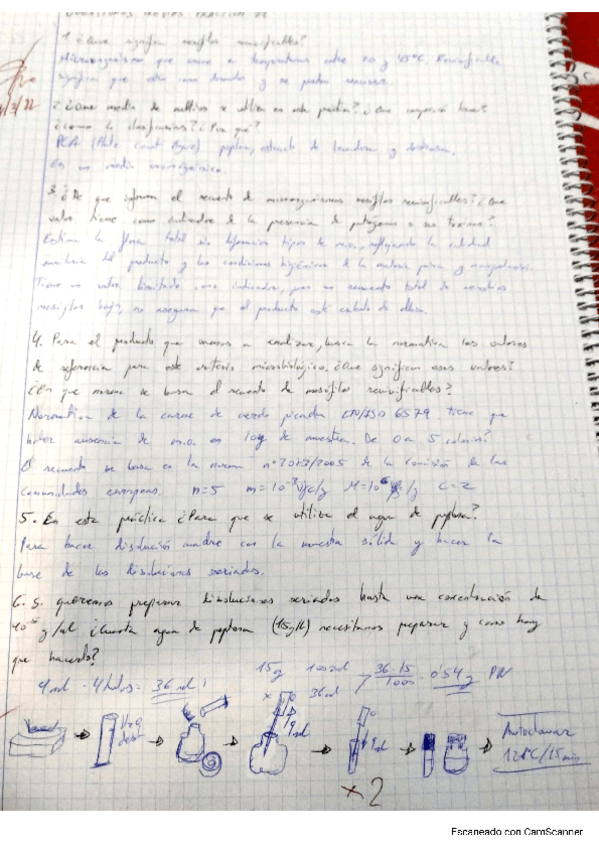 CUESTIONES PREVIAS PRÁCTICA
1. ¿Que significa mesófilos revivificables?
Microorganismos que crecen a temperaturas entre 20 y 45ºC. Revivificable
significa que están como dormidos y se pueden
2. ¿Que medio de cultivo se utiliza en esta práctica? ¿Que composición tiene?
¿Como lo clasificarías? ¿Por qué?
PCA (Plate Count Agar) peptona, extracto de levadura y dextrosa.
Es un medio
3. ¿De que informa el recuento de microorganismos mesófilos revivificables? ¿Que
valor tiene como indicador de la presencia de patógenos o sus toxinas?
Estima la flora total sin diferenciar tipos de m.o., reflejando la calidad
sanitaria del producto y las condiciones higiénicas de la materia prima y manipulación
Tiene un valor limitado como indicador, pues un recuento total de aerobios
mesófilos bajo, no asegura que el producto este exento de ellos.
4. Para el producto que vamos a analizar, busca la normativa los valores
de referencia para este criterio microbiológico, ¿Que significan esos valores?
¿En que norma se busca el recuento de mesófilos revivificables?
Normativa de la carne de cerdo picada EN/ISO 6579 tiene que
haber ausencia de m.o. en 10g de muestra. De 0 a 5 colonias?
El recuento se busca en la norma nº2073/2005 de la Comisión de las
Comunidades europeas. n=5 m=10⁻³ M=10⁶ /g C=2
5. En esta práctica ¿Para que se utiliza el agua de peptona?
Para hacer disolución madre con la muestra sólida y hacer la
base de las disoluciones seriadas.
6. Si queremos preparar disoluciones seriadas hasta una concentración de
g/ml ¿Cuanta agua de peptona (15g/l) necesitamos preparar y como hay
que hacerlo?
9ml · 4 tubos = 36 ml
15g 1000ml
x 36ml
36·15/1000 = 0'54g
H₂O dest
9ml
9ml
x2
Autoclavar
121ºC/15min
Escaneado con CamScanner